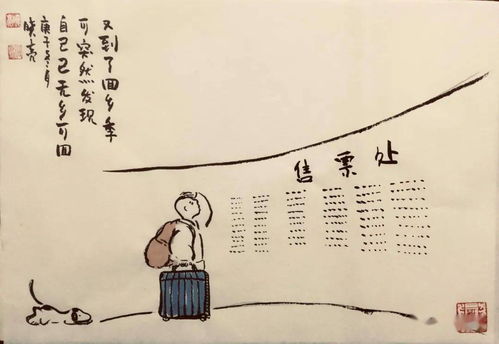 又到了回乡季
可突然发现
自己已无乡可回
庚子冬月
晓亮
售票处